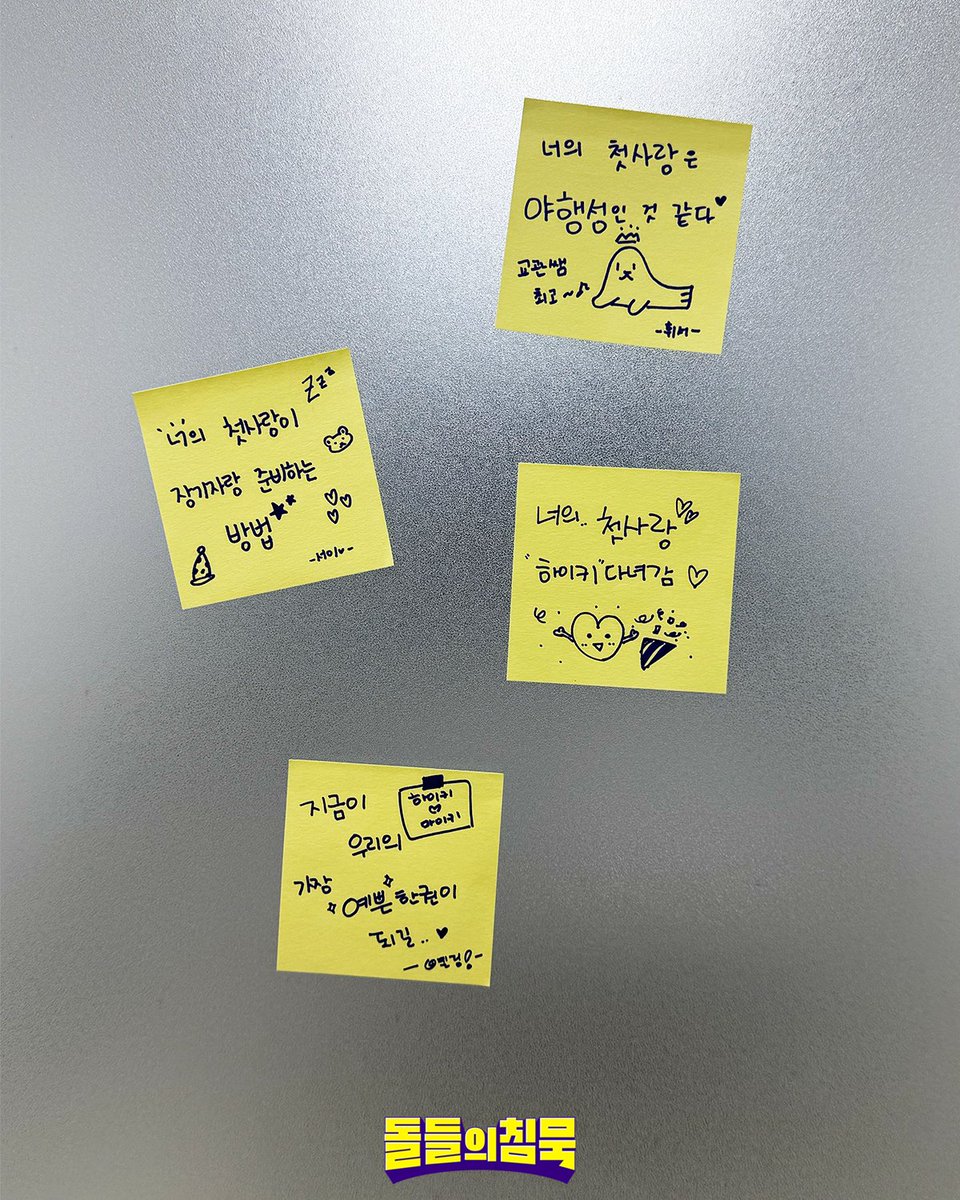 너의 첫사랑은
야행성인 것 같다
교관쌤
최고~
-휘서-
zzz
너의 첫사랑이
장기자랑 준비하는
방법
-서이-
너의.. 첫사랑
"하이키"다녀감
지금이
하이키
마이키
우리의
가장
예쁜 한권이
되길..
-옐!-
돌들의침묵